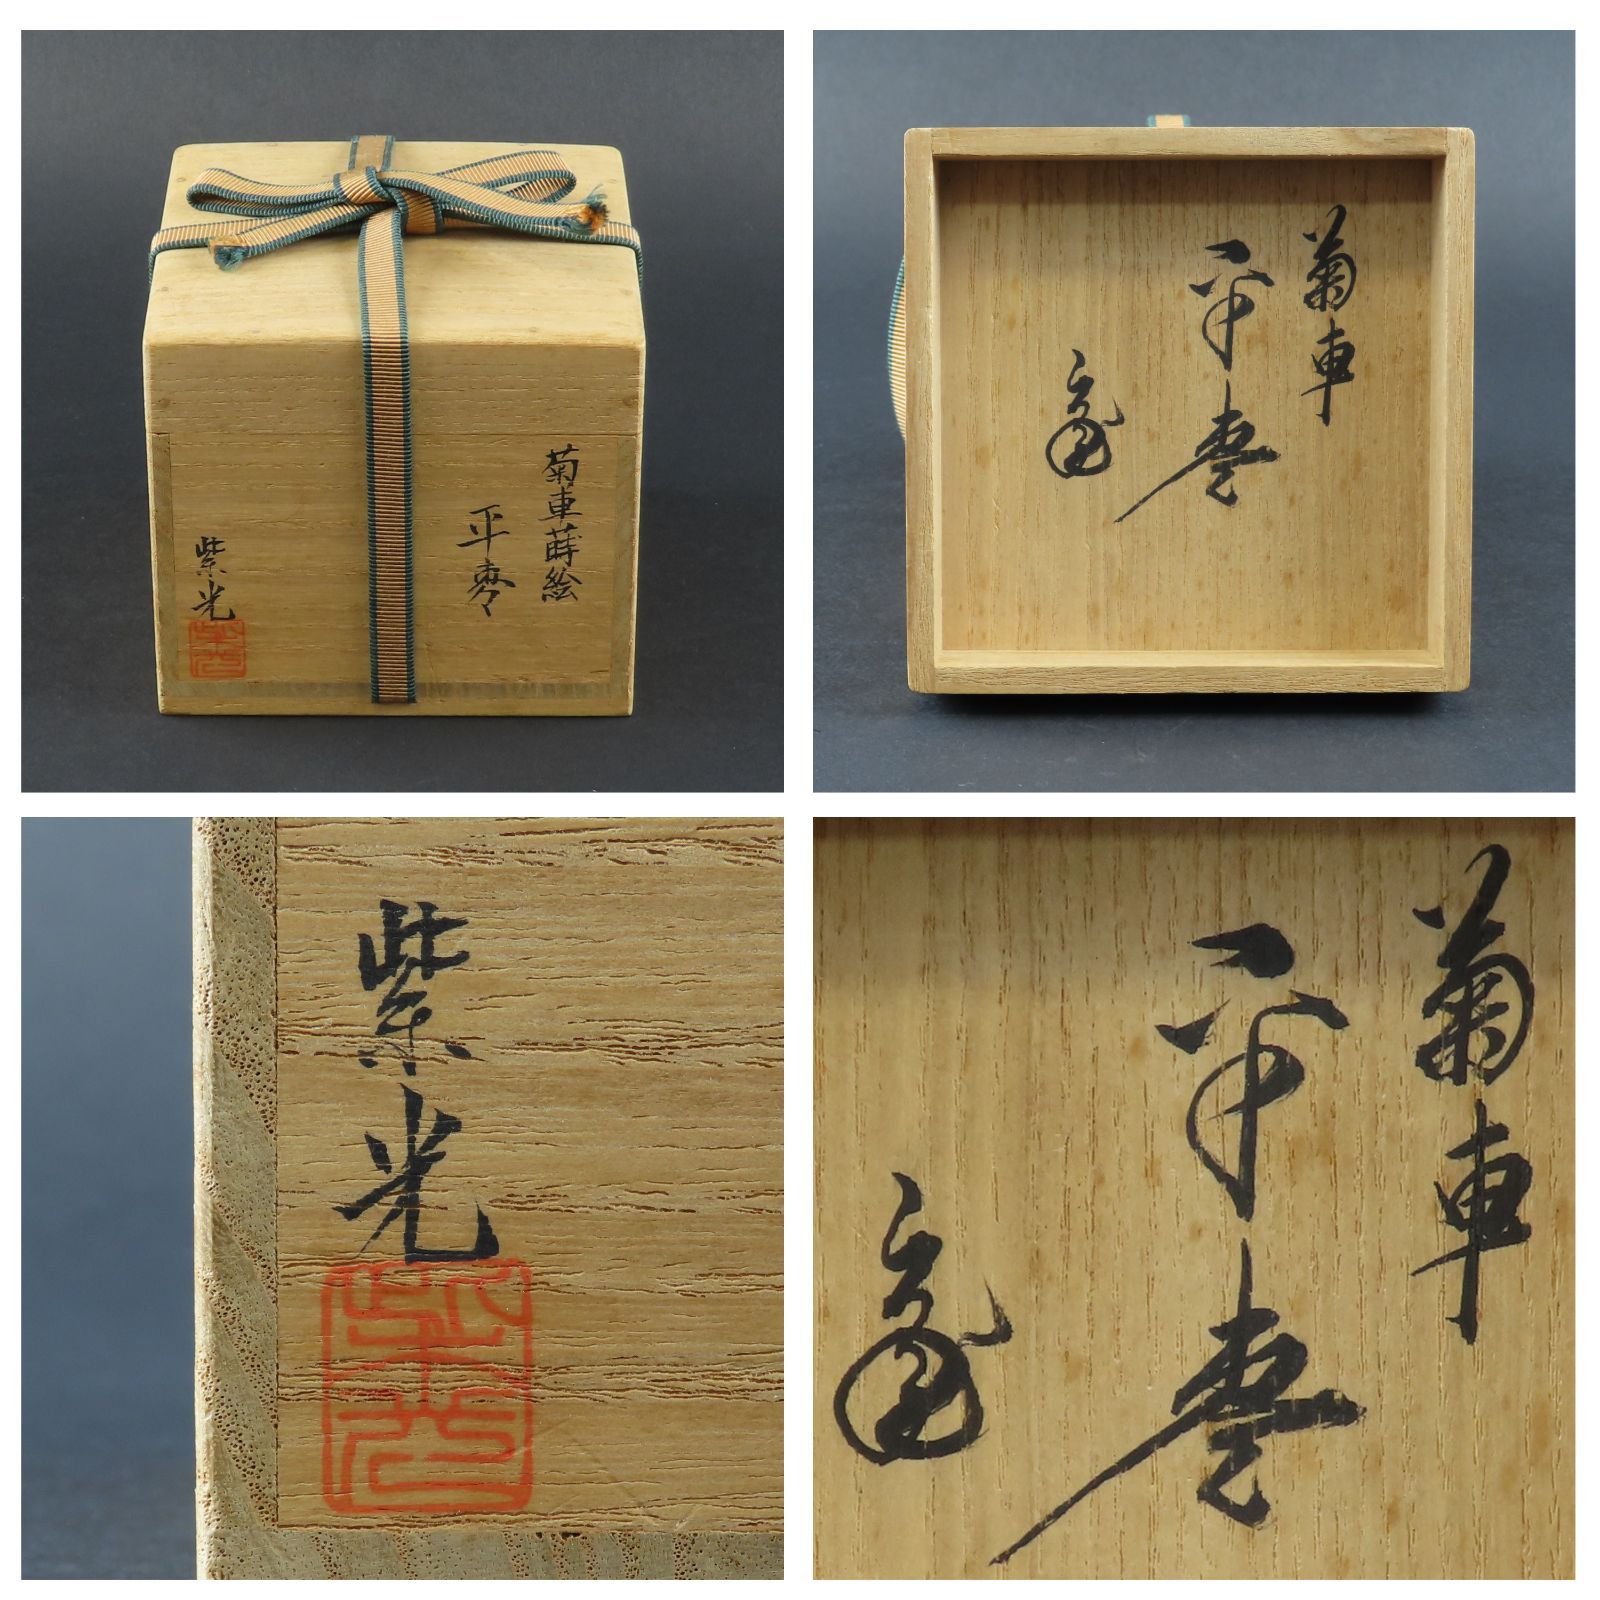 菊車蒔絵
平棗
紫光
菊車
平棗
紫光
紫光
菊車
平棗